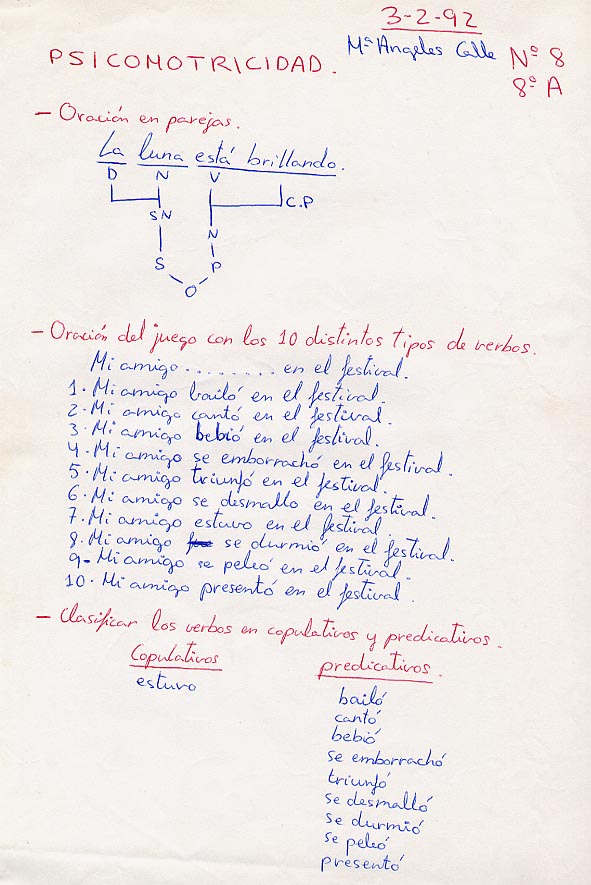 3-2-92
Mª Angeles Calle Nº 8
8º A
PSICOMOTRICIDAD.
- Oración en parejas.
La luna está brillando.
D N V
C.P
SN
N
S P
O
- Oración del juego con los 10 distintos tipos de verbos.
Mi amigo ......... en el festival.
1. Mi amigo bailó en el festival.
2. Mi amigo cantó en el festival.
3. Mi amigo bebió en el festival.
4. Mi amigo se emborrachó en el festival.
5. Mi amigo triunfó en el festival.
6. Mi amigo se desmallo en el festival.
7. Mi amigo estuvo en el festival.
8. Mi amigo se durmió en el festival.
9- Mi amigo se peleó en el festival.
10. Mi amigo presentó en el festival.
- Clasificar los verbos en copulativos y predicativos.
Copulativos predicativos.
estuvo
bailó
cantó
bebió
se emborrachó
triunfó
se desmalló
se durmió
se peleó
presentó